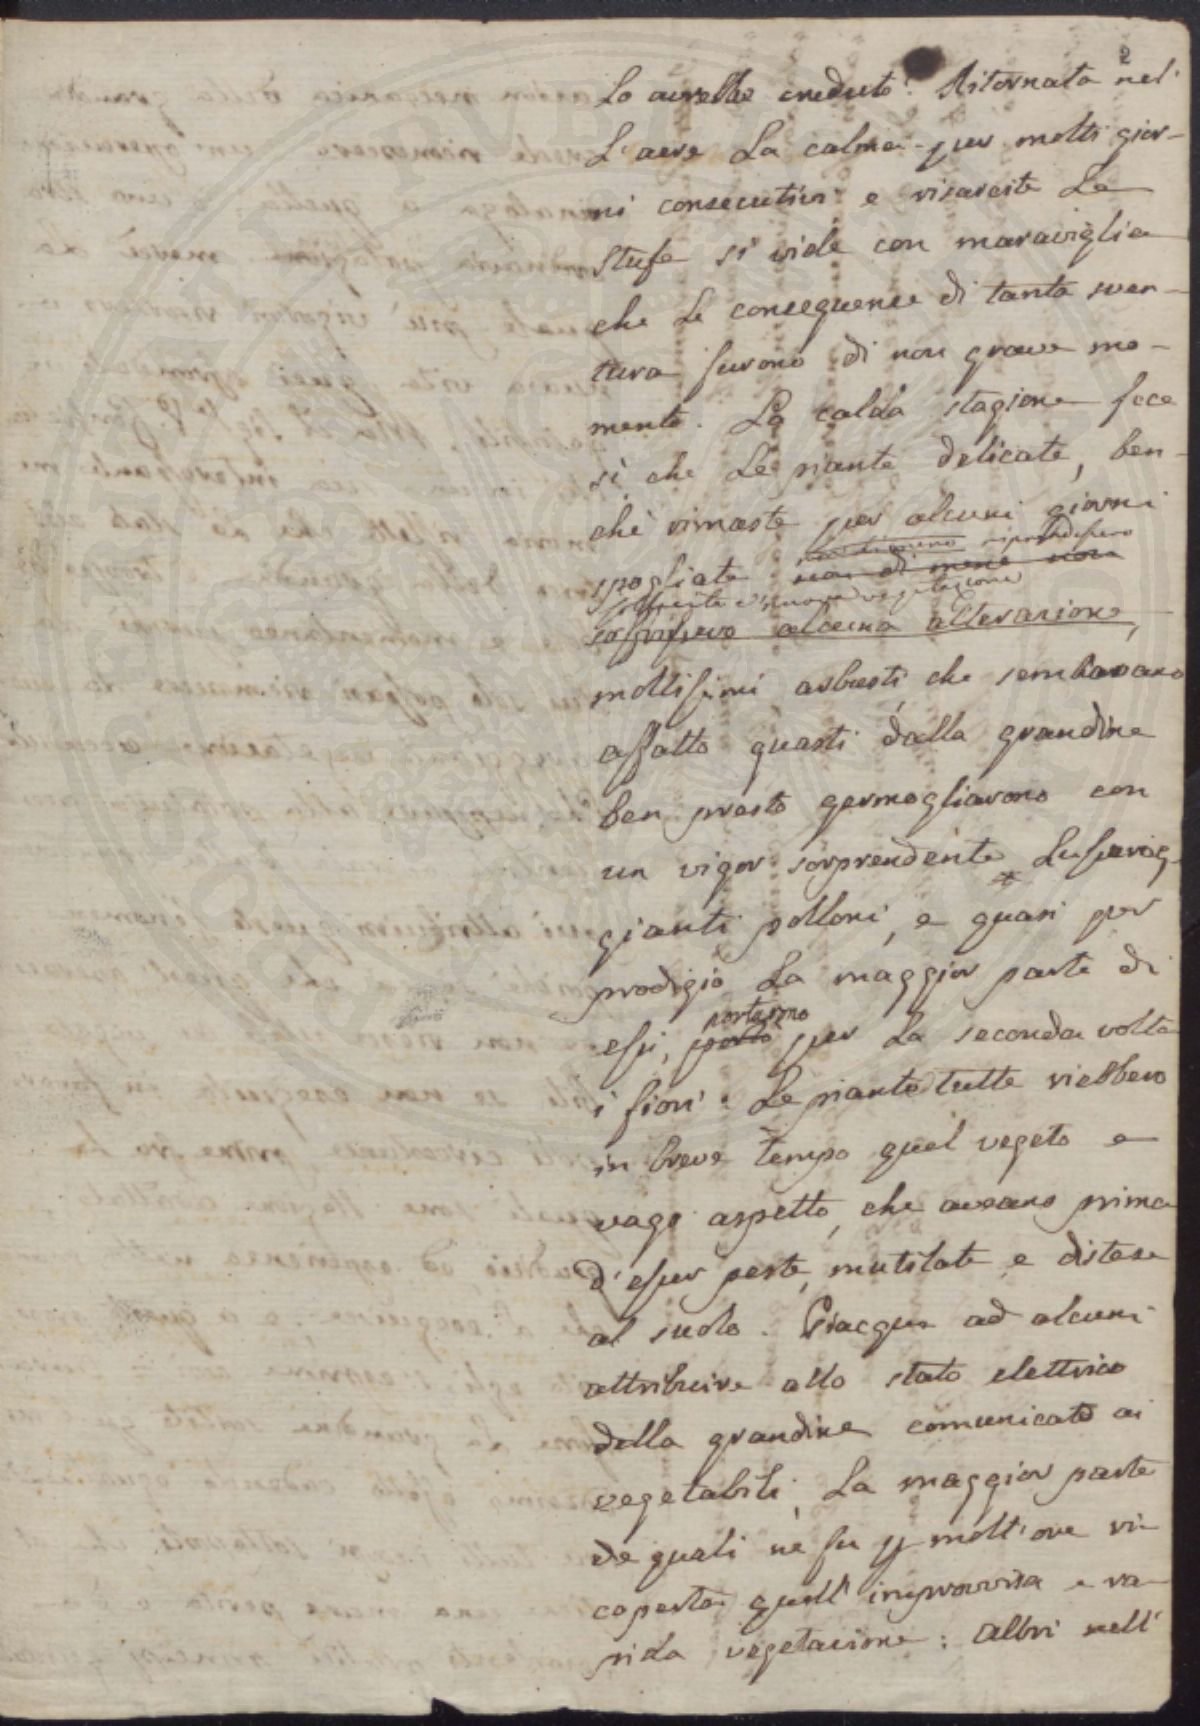 2
lo avrebbe creduto! Ritornata nel
l'aere la calma per molti gior-
ni consecutivi e risarcite le
stufe si vide con maraviglia
che le conseguenze di tanta sven-
tura furono di non grave mo-
mento. La calda stagione fece
sì che le piante delicate, ben-
chè rimaste per alcuni giorni
nondimeno
spogliate non di meno non
di nuova vegetazione
soffrissero alcuna alterazione,
moltissimi arbusti che sembravano
affatto guasti dalla grandine
ben presto germogliarono con
un vigor sorprendente lussureg-
gianti polloni, e quasi per
prodigio la maggior parte di
portarono
essi, portò per la seconda volta
i fiori. Le piante tutte riebbero
in breve tempo quel vegeto e
vago aspetto, che aveano prima
d'esser peste, mutilate e distese
al suolo. Piacque ad alcuni
attribuire allo stato elettrico
della grandine comunicato ai
vegetabili, la maggior parte
de quali nè fu p molt'ore ri-
coperta quell'improvvisa e ra-
pida vegetazione: altri nell'